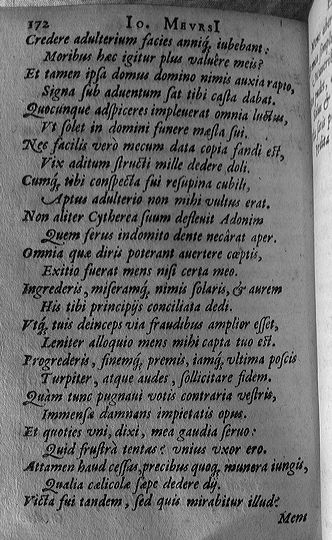 172 IO. MEVRSI
Credere adulterium facies anniq́, iubebant:
Moribus hæc igitur plus valuêre meis?
Et tamen ipsa domus domino nimis auxia rapto,
Signa sub aduentum sat tibi casta dabat.
Quocunque adspiceres impleuerat omnia luctus,
Vt solet in domini funere mæsta sui.
Nec facilis verò mecum data copia fandi est,
Vix aditum structi mille dedere doli.
Cumq́, tibi conspecta fui resupina cubili,
Aptus adulterio non mihi vultus erat.
Non aliter Cytherea suum defleuit Adonim
Quem ferus indomito dente necârat aper.
Omnia quæ diris poterant auertere cœptis,
Exitio fuerat mens nisi certa meo.
Ingrederis, miseramq́, nimis solaris, & aurem
His tibi principijs conciliata dedi.
Vtq́, tuis deinceps via fraudibus amplior esset,
Leniter alloquio mens mihi capta tuo est.
Progrederis, finemq́, premis, iamq́, vltima poscis
Turpiter, atque audes, sollicitare fidem.
Quàm tunc pugnaui votis contraria vestris,
Immensæ damnans impietatis opus.
Et quoties vni, dixi, mea gaudia seruo:
Quid frustrà tentas? vnius vxor ero.
Attamen haud cessas, precibus quoq, munera iungis,
Qualia cælicolæ sæpe dedere dij.
Victa fui tandem, sed quis mirabitur illud?
Ment